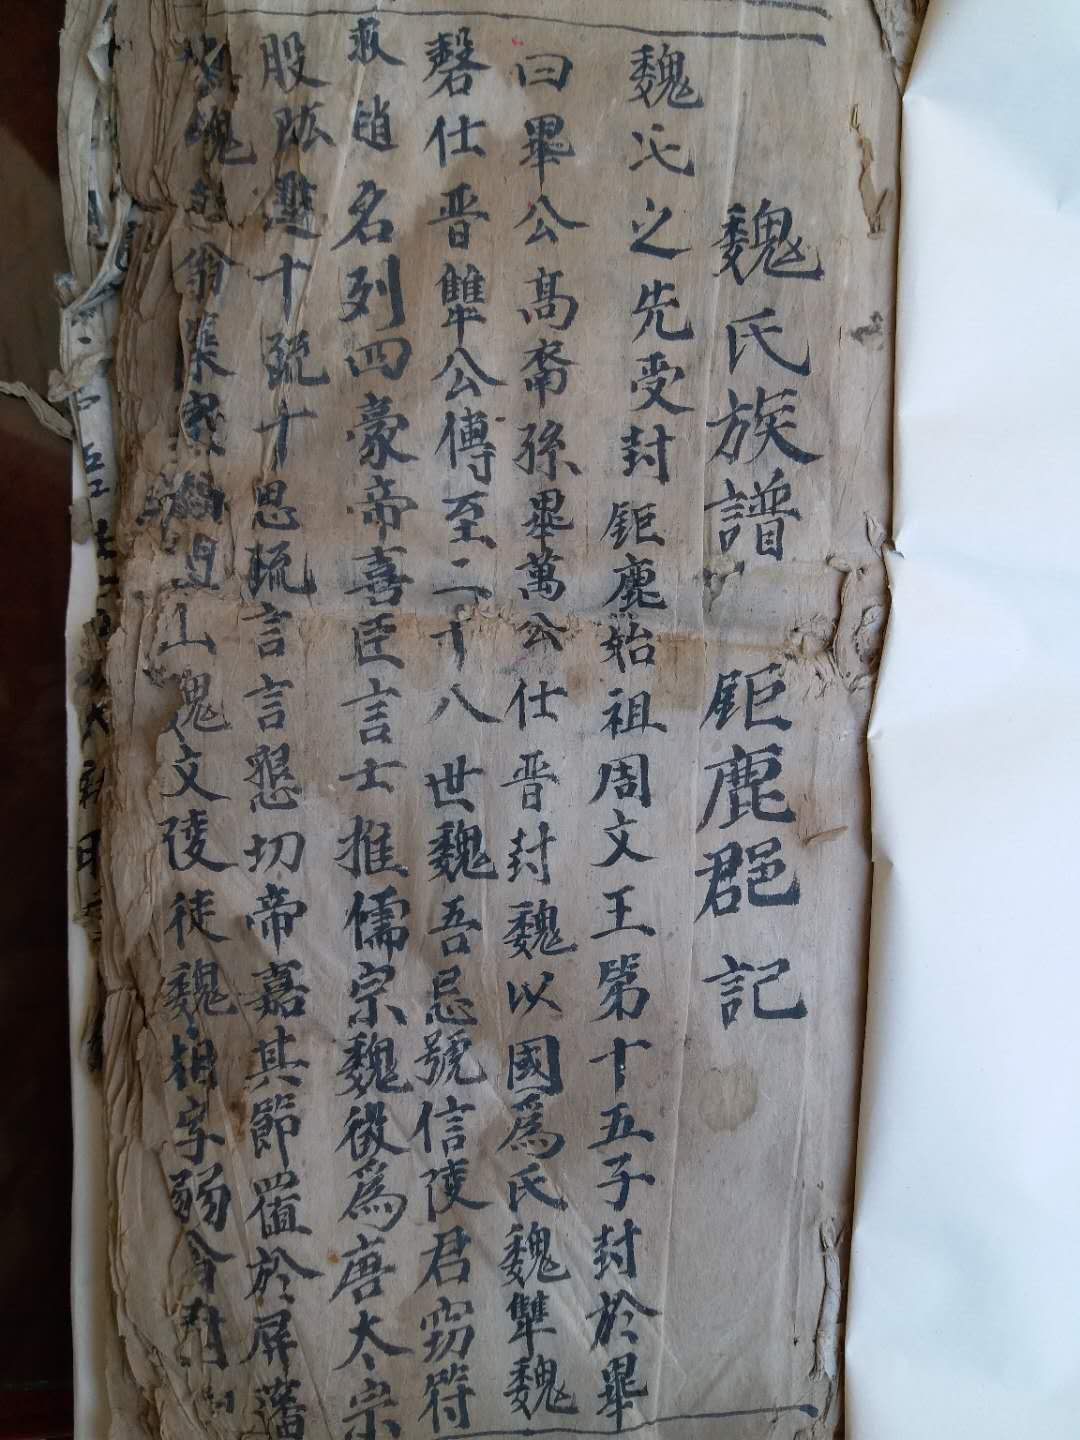 魏氏族譜 鉅鹿郡記
魏氏之先受封鉅鹿始祖周文王第十五子封於畢
曰畢公高裔孫畢萬公仕晉封魏以國為氏魏犨魏
磬仕晉犨公傳至二十八世魏吾忌號信陵君窃符
救趙名列四豪帝喜臣言士推儒宗魏徵為唐太宗
股肱十疏十思疏言言懇切帝嘉其節置於屏藩
翁集山魏文陵徒魏相字弱翁